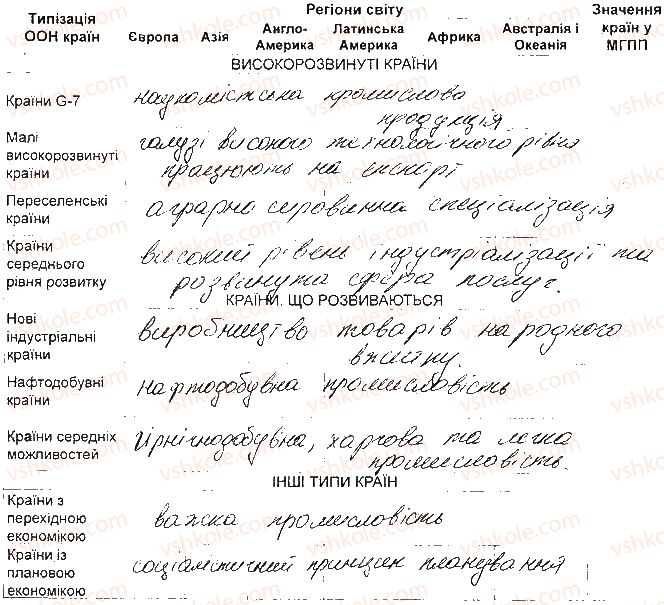 Типізація ООН країн
Регіони світу
Значення країн у МГПП
Європа Азія Англо-Америка Латинська Америка Африка Австралія і Океанія
ВИСОКОРОЗВИНУТІ КРАЇНИ
Країни G-7
наукомістська промислова
продукція
Малі високорозвинуті країни
галузі високого технологічного рівня
працюють на експорт
Переселенські країни
аграрно сировинна спеціалізація
Країни середнього рівня розвитку
високий рівень індустріалізації та
розвинута сфера послуг.
КРАЇНИ, ЩО РОЗВИВАЮТЬСЯ
Нові індустріальні країни
виробництво товарів народного
вжитку.
Нафтодобувні країни
нафтодобувна промисловість
Країни середніх можливостей
Гірничодобувна, харчова та легка
промисловість.
ІНШІ ТИПИ КРАЇН
Країни з перехідною економікою
важка промисловість
Країни із плановою економікою
соціалістичний принцип планування
vshkole.com